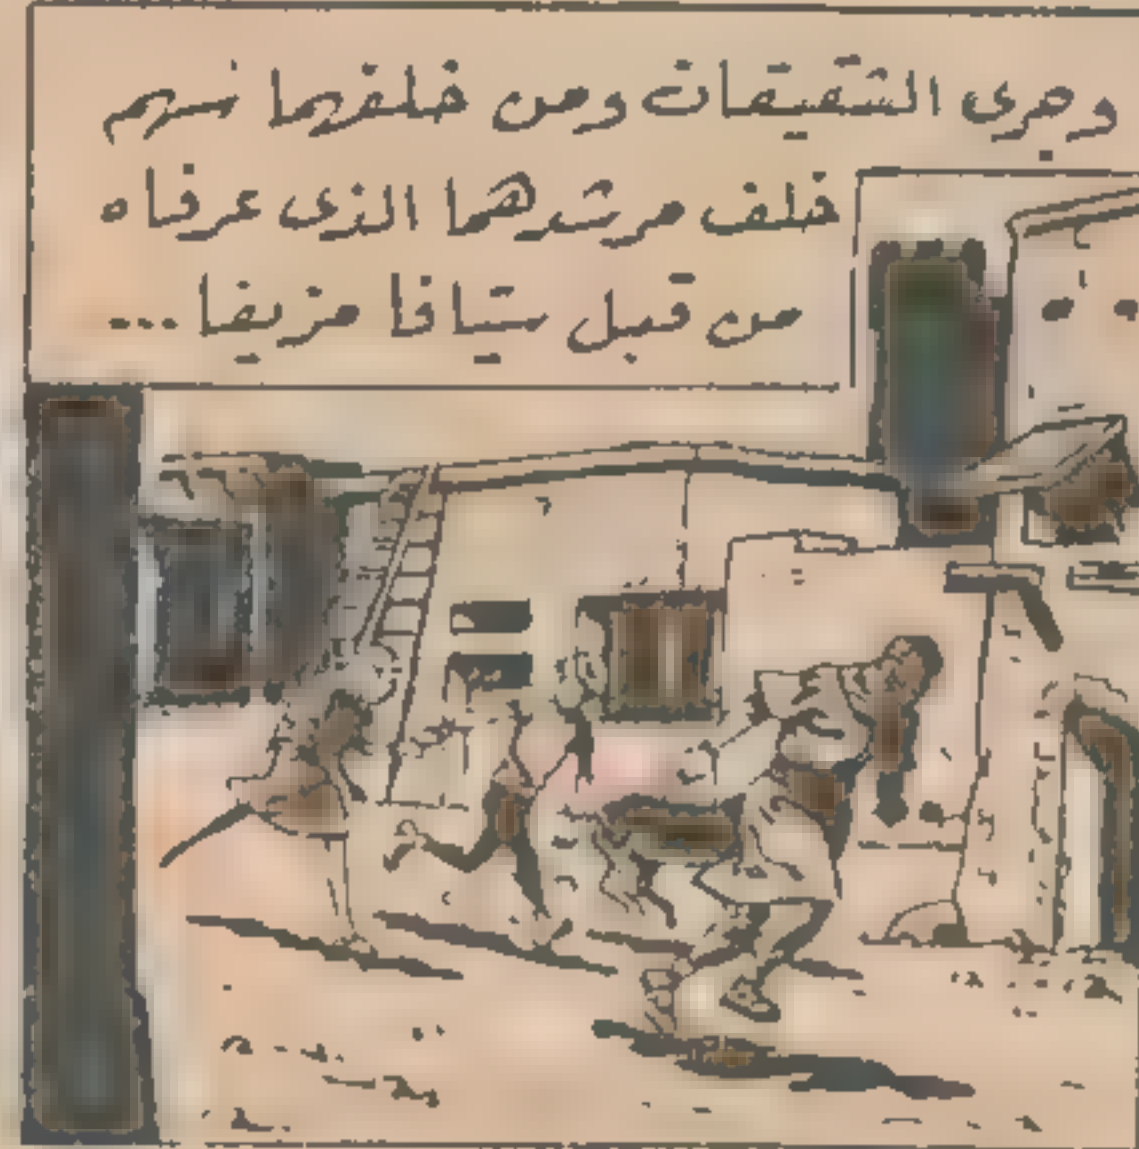 وجرى الشقيقان ومن خلفهما نسهم
خلف مرشدهما الذى عرفاه
من قبل سيافا مزيفا ...